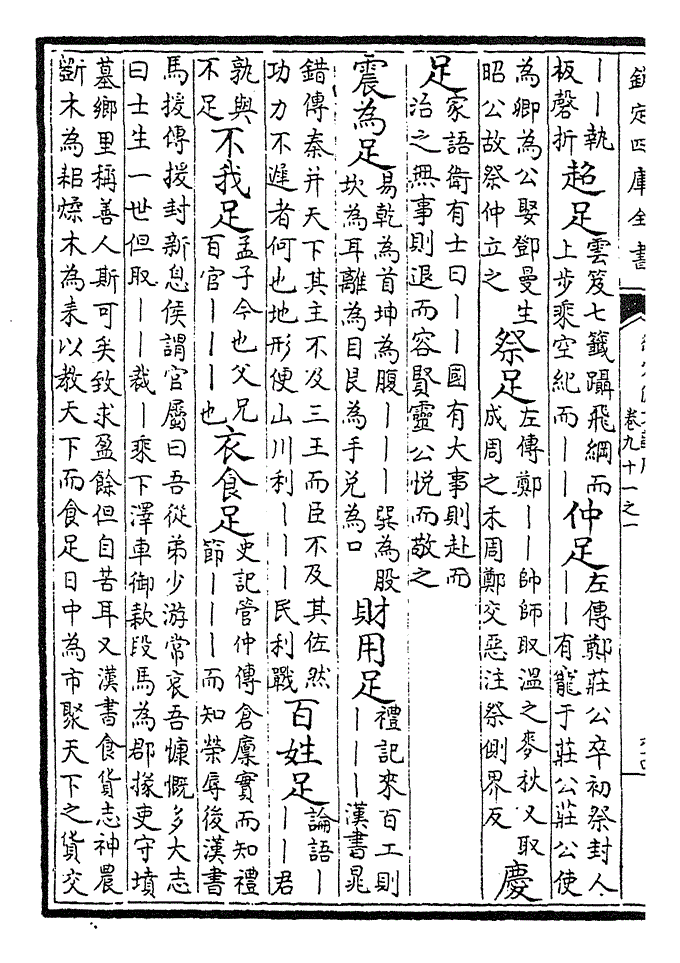 欽定四庫全書
卷九十一之一
丨丨執
板磬折
超足
雲笈七籤躡飛綱而
上步乘空紀而丨丨
仲足
左傳鄭莊公卒初祭封人
丨丨有寵于莊公莊公使
為卿為公娶鄧曼生
昭公故祭仲立之
祭足
左傳鄭丨丨帥師取溫之麥秋又取
成周之禾周鄭交惡注祭側界反
慶
足
家語衛有士曰丨丨國有大事則赴而
治之無事則退而容賢靈公悅而敬之
震為足
易乾為首坤為腹丨丨丨巽為股
坎為耳離為目艮為手兌為口
財用足
禮記來百工則
丨丨丨漢書晁
錯傳秦并天下其主不及三王而臣不及其佐然
功力不遲者何也地形便山川利丨丨丨民利戰
百姓足
論語丨
丨丨君
孰與
不足
不我足
孟子今也父兄
百官丨丨丨也
衣食足
史記管仲傳倉廩實而知禮
節丨丨丨而知榮辱後漢書
馬援傳援封新息侯謂官屬曰吾從弟少游常哀吾慷慨多大志
曰士生一世但取丨丨裁丨乘下澤車御款段馬為郡掾吏守墳
墓鄉里稱善人斯可矣致求盈餘但自苦耳又漢書食貨志神農
斵木為耜煣木為耒以教天下而食足日中為市聚天下之貨交